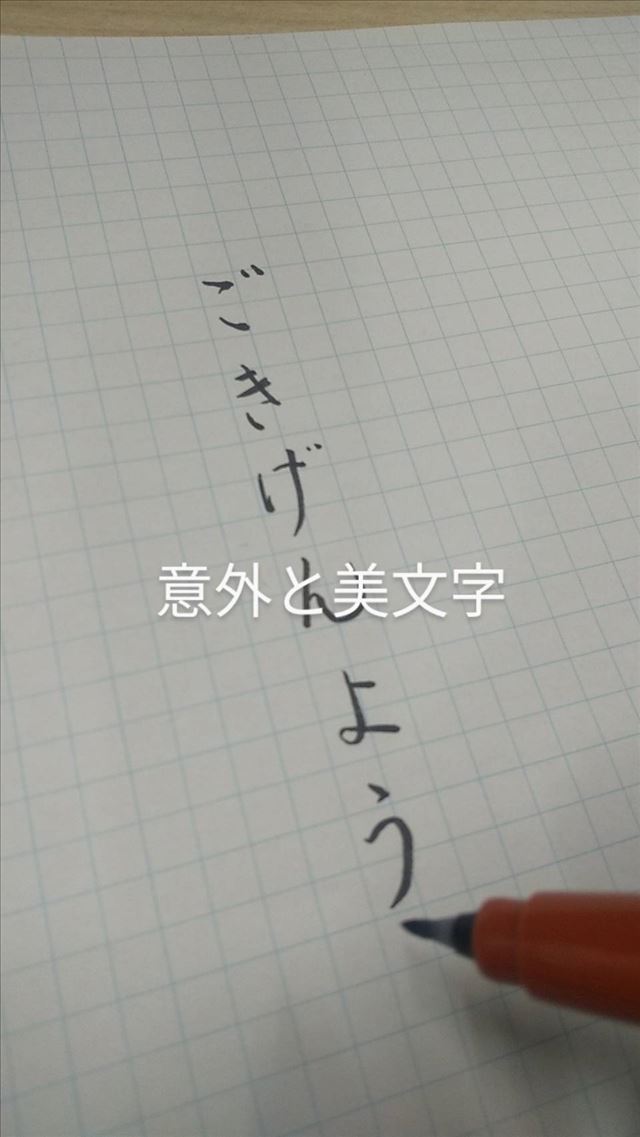 ごきげんよう
意外と美文字